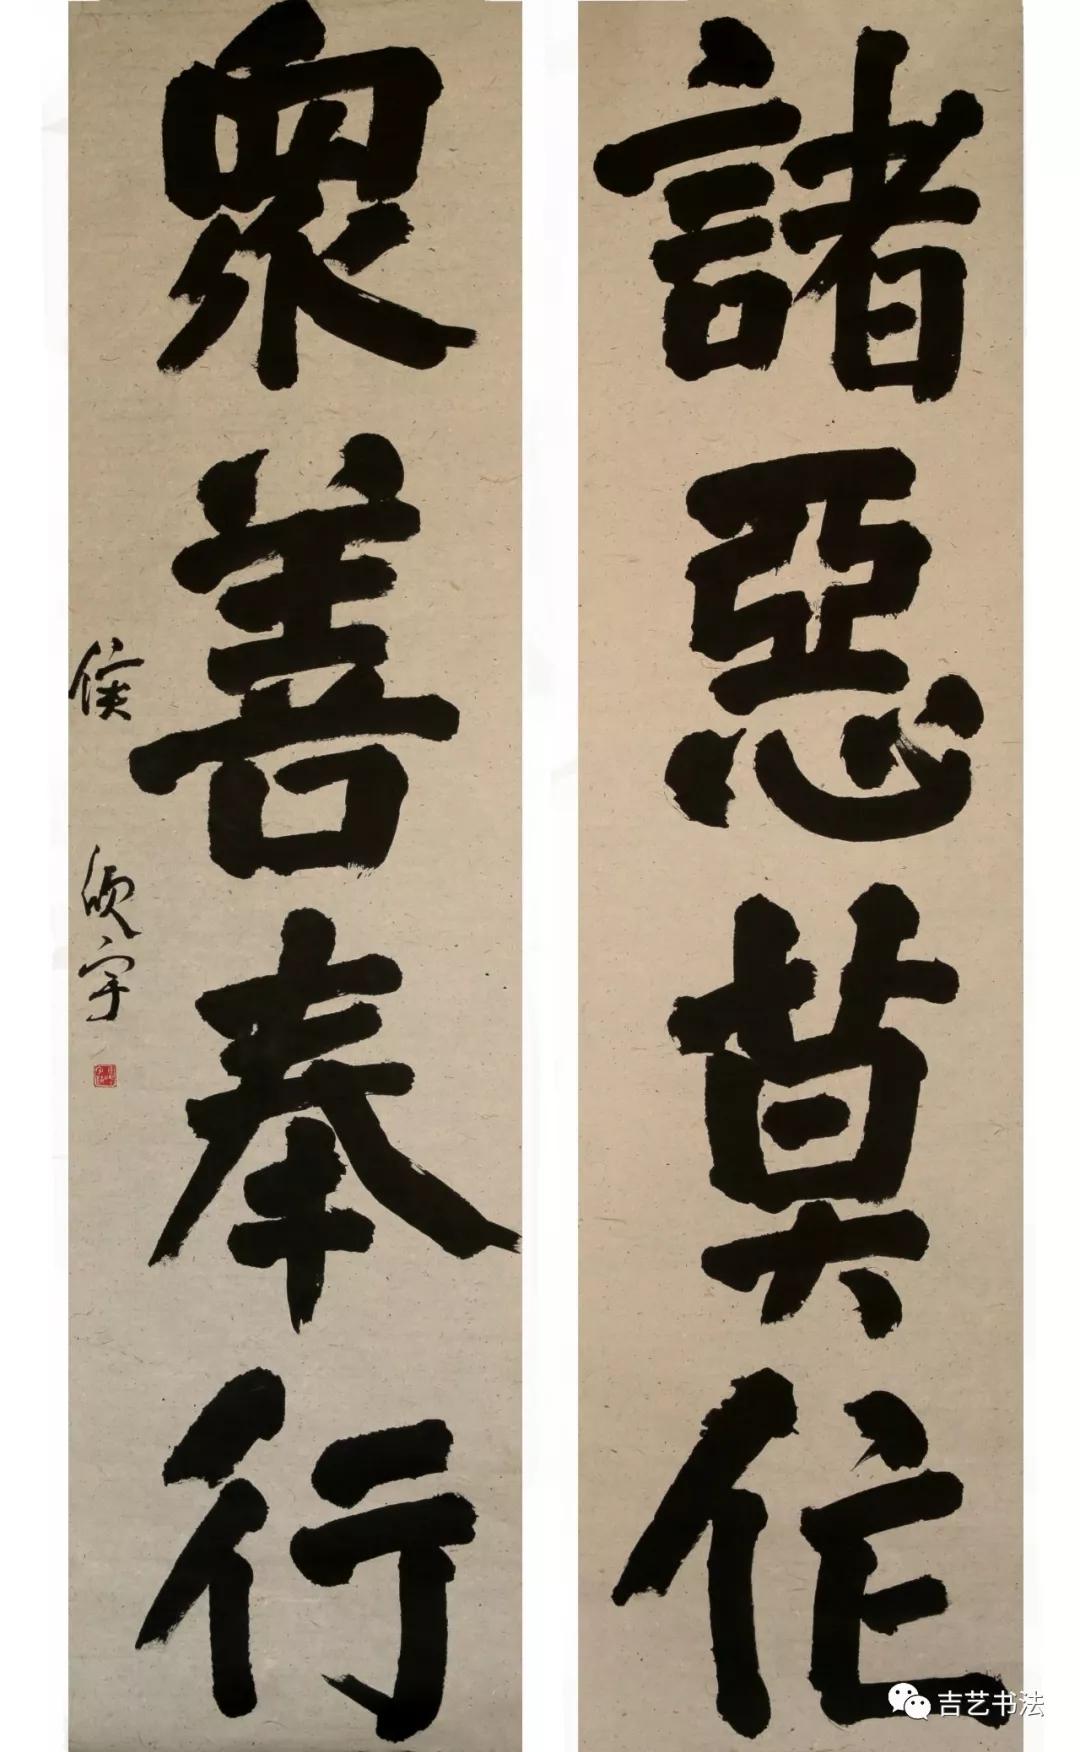 諸惡莫作
眾善奉行
侯
宇
吉艺书法